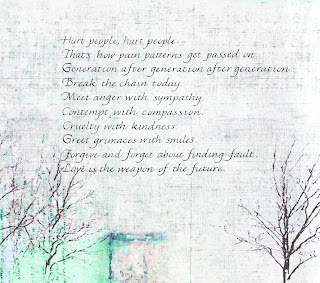 Hurt people, hurt people...
That's how pain patterns get passed on.
Generation after generation after generation.
Break the chain today.
Meet anger with sympathy.
Contempt with compassion.
Cruelty with kindness.
Greet grimaces with smiles.
Forgive and forget about finding fault.
Love is the weapon of the future.